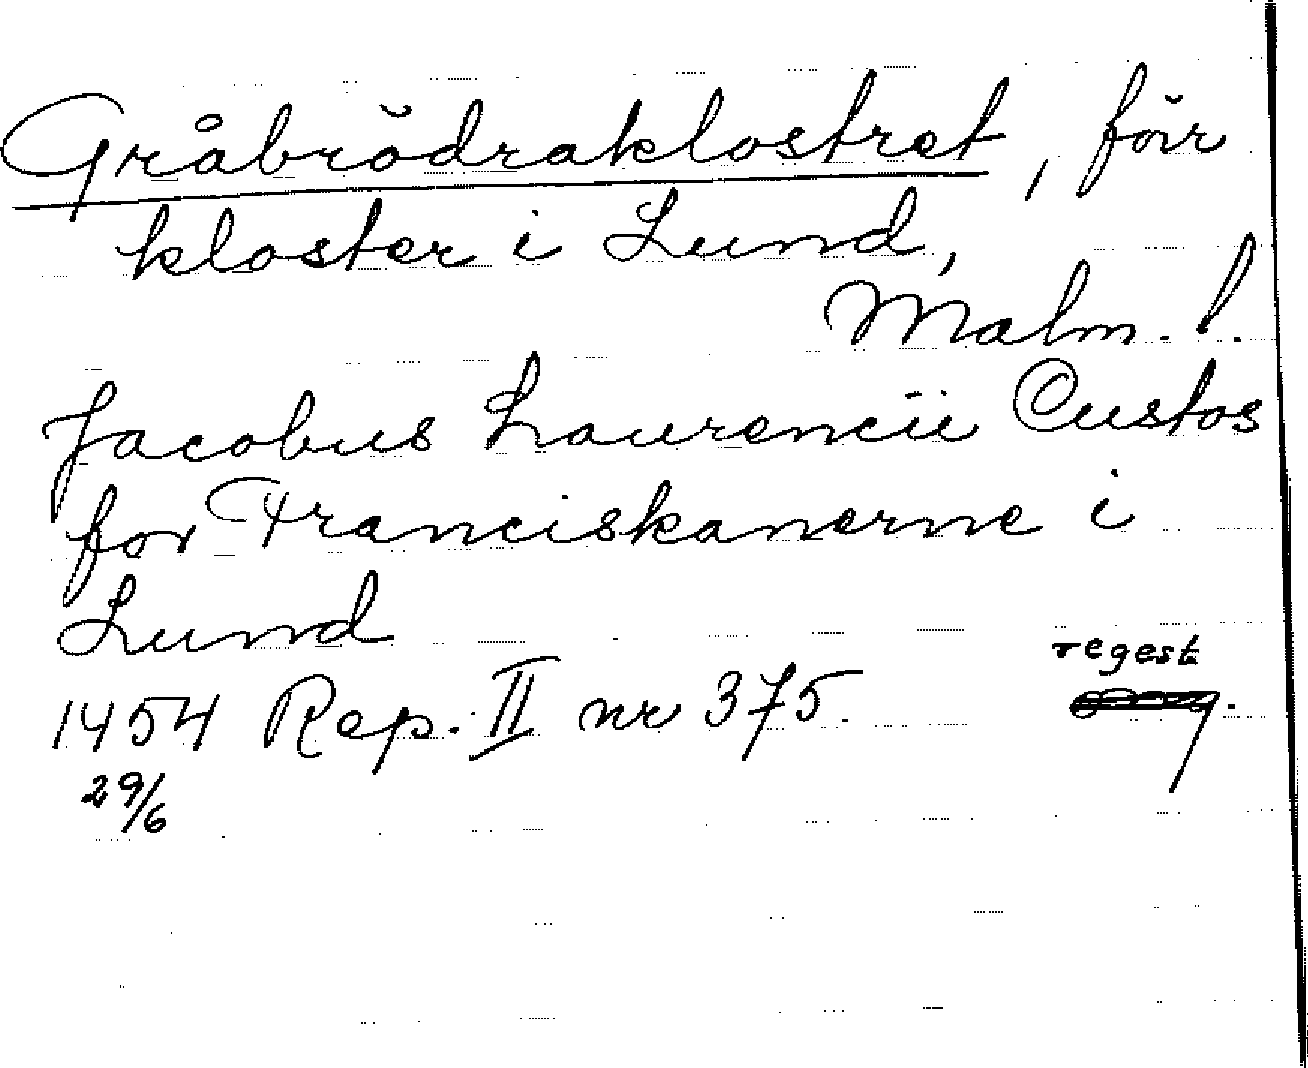 Gråbrödraklostret, förr
kloster i Lund,
Malm. l.
Jacobus Laurencii Custos
for Franciskanerne i
Lund
regest
1454 Rep. II nr 375.
29/6